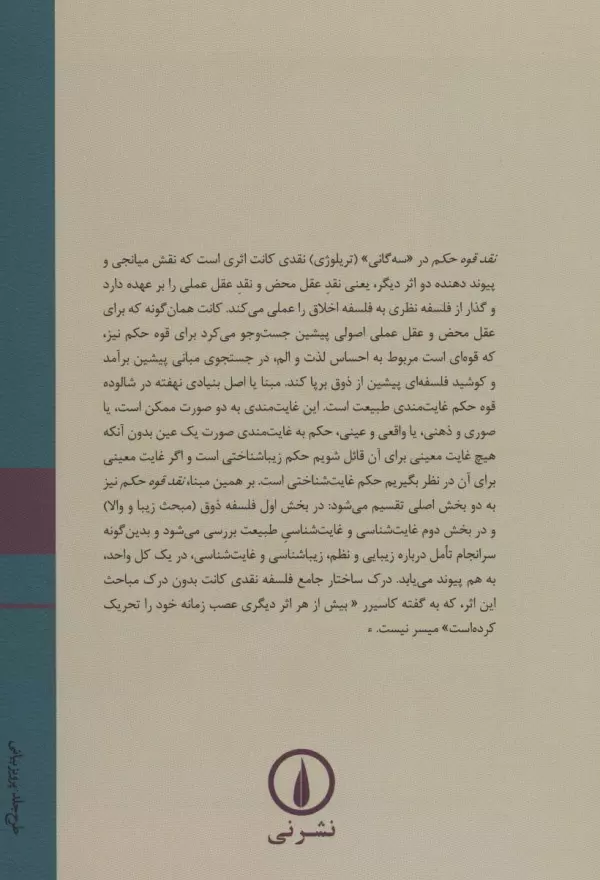 نقد قوه حکم در «سه‌گانی» (تریلوژی) نقدی کانت اثری است که نقش میانجی و
پیوند دهنده دو اثر دیگر، یعنی نقدِ عقل محض و نقدِ عقل عملی را بر عهده دارد
و گذار از فلسفه نظری به فلسفه اخلاق را عملی می‌کند. کانت همان‌گونه که برای
عقل محض و عقل عملی اصولی پیشین جست‌وجو می‌کرد برای قوه حکم نیز،
که قوه‌ای است مربوط به احساس لذت و الم، در جستجوی مبانی پیشین برآمد
و کوشید فلسفه‌ای پیشین از ذوق برپا کند. مبنا یا اصل بنیادی نهفته در شالوده
قوه حکم غایت‌مندی طبیعت است. این غایت‌مندی به دو صورت ممکن است، یا
صوری و ذهنی، یا واقعی و عینی، حکم به غایت‌مندی صورت یک عین بدون آنکه
هیچ غایت معینی برای آن قائل شویم حکم زیباشناختی است و اگر غایت معینی
برای آن در نظر بگیریم حکم غایت‌شناختی است. بر همین مبنا، نقد قوه حکم نیز
به دو بخش اصلی تقسیم می‌شود: در بخش اول فلسفه ذوق (مبحث زیبا و والا)
و در بخش دوم غایت‌شناسی و غایت‌شناسیِ طبیعت بررسی می‌شود و بدین‌گونه
سرانجام تأمل درباره زیبایی و نظم، زیباشناسی و غایت‌شناسی، در یک کل واحد،
به هم پیوند می‌یابد. درک ساختار جامع فلسفه نقدی کانت بدون درک مباحث
این اثر، که به گفته کاسیرر « بیش از هر اثر دیگری عصب زمانه خود را تحریک
کرده‌است» میسر نیست.
نشر نی
طرح جلد: پرویز بیانی